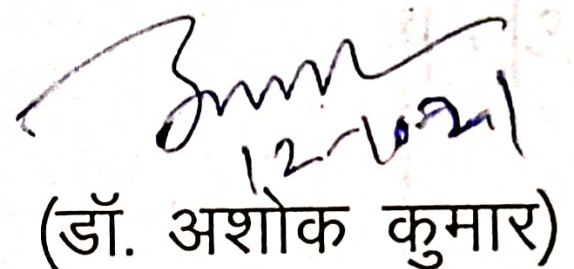 12-10-21
(डॉ. अशोक कुमार)